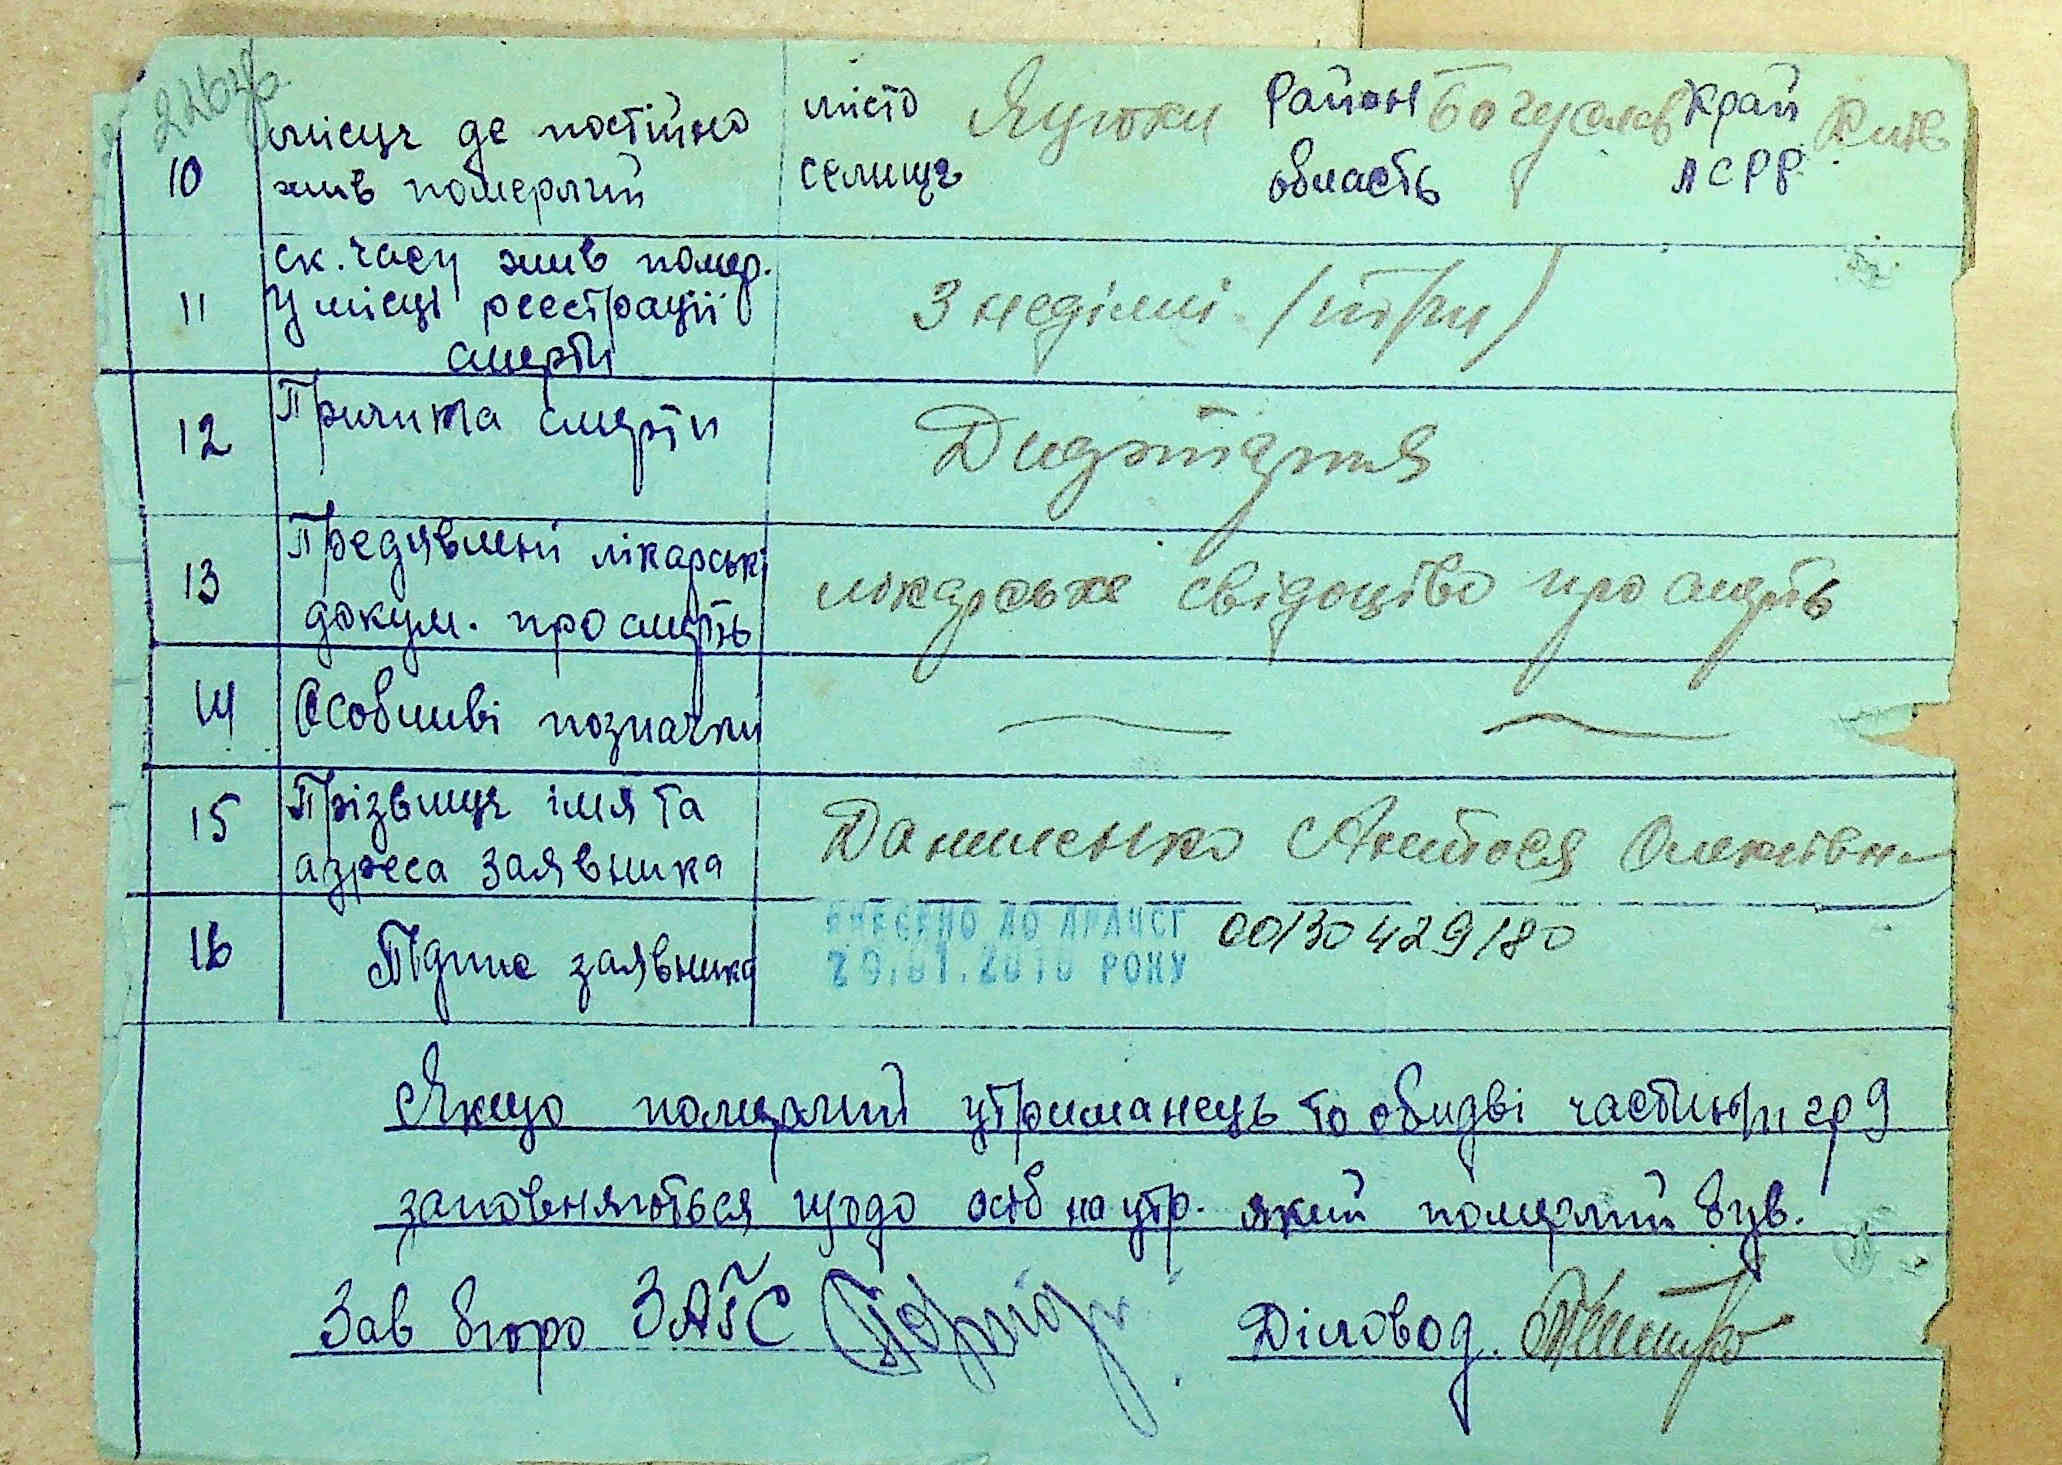 226зв
10 місце де постійно
жив померлий
місто Яцюки Район Богуслав Край Київ
селище область АСРР
11 ск. часу жив помер.
У місці реєстрації
смерти
3 неділи. (три)
12 Причина смерти
Дизентерия
13 Предявлені лікарські
докум. про смерть
лікарське свідоцтво про смерть
14 Особливі позначки
15 Прізвище імя та
адреса заявника
Даниленко Олексіївна
16 Підпис заявника
ВНЕСЕНО ДО ДРАЦСГ 00130429180
29.01.2010 РОКУ
Якщо померлий утриманець то обидві частини гр 9
заповняються щодо осіб на утр. який померлий був.
Зав бюро ЗАГС Діловод.